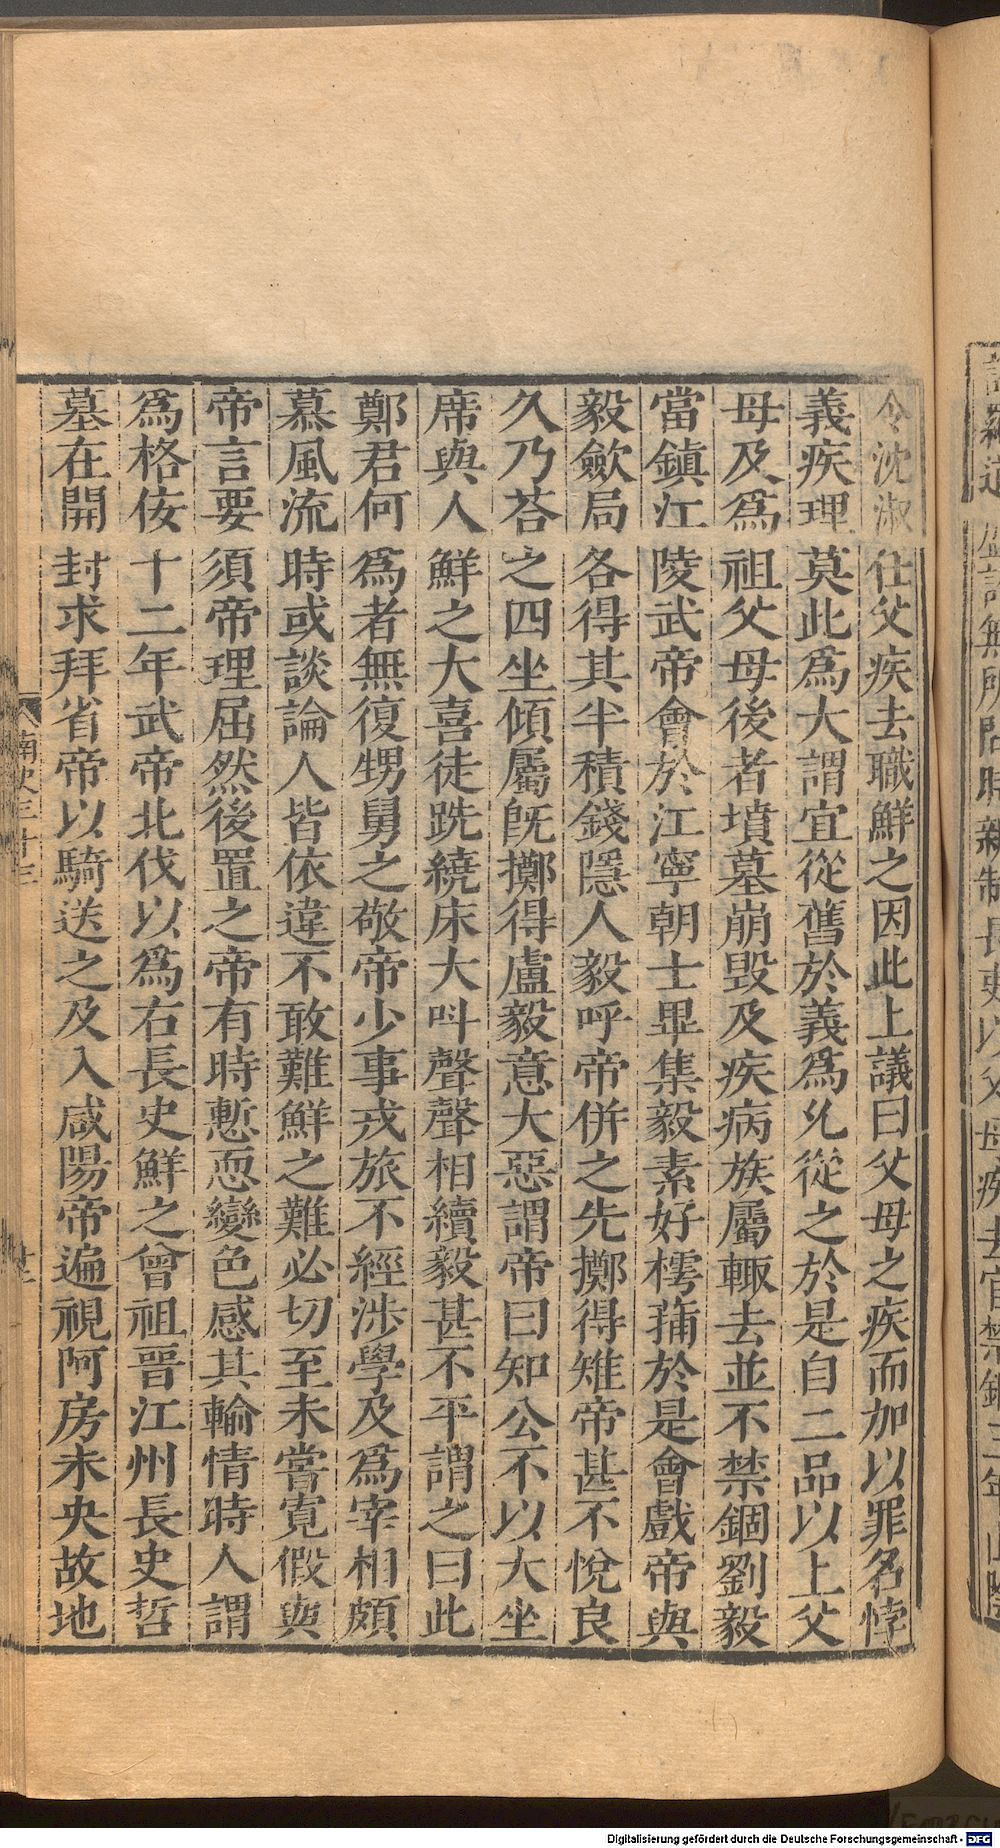 令沈淑仕父疾去職鮮之因此上議曰父母之疾而加以罪名悖
義疾理莫此爲大謂宜從舊於義爲允從之於是自二品以上父
母及爲祖父母後者墳墓崩毀及疾病族屬輙去並不禁錮劉毅
當鎮江陵武帝會於江寧朝士畢集毅素好樗蒱於是會戲帝與
毅歛局各得其半積錢隱人毅呼帝併之先擲得雉帝甚不悅良
久乃荅之四坐傾屬旣擲得盧毅意大惡謂帝曰知公不以大坐
席與人鮮之大喜徒跣繞床大呌聲聲相續毅甚不平謂之曰此
鄭君何爲者無復甥舅之敬帝少事戎旅不經涉學及爲宰相頗
慕風流時或談論人皆依違不敢難鮮之難必切至未嘗寛假與
帝言要須帝理屈然後置之帝有時慙恧變色感其輸情時人謂
爲格佞十二年武帝北伐以爲右長史鮮之曾祖晋江州長史哲
墓在開封求拜省帝以騎送之及入咸陽帝遍視阿房未央故地
南史三十三
Digitalisierung gefördert durch die Deutsche Forschungsgemeinschaft - DFG